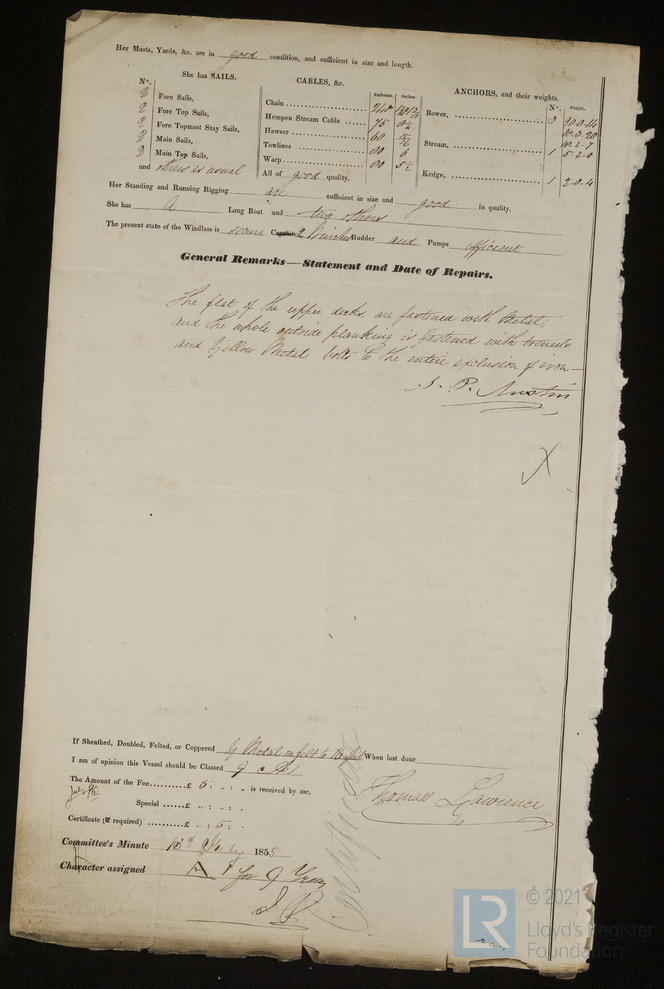 Her Masts, Yards, &c. are in good condition, and sufficient in size and length.
She has SAILS.
CABLES, &c.
ANCHORS, and their weights.
N°.
Fathoms. Inches.
N°. Weight.
2 Fore Sails,
2 Fore Top Sails,
2 Fore Topmast Stay Sails,
2 Main Sails,
2 Main Top Sails,
and others as usual
Chain
Hempen Stream Cable 75
Hawser 60
Towlines 80 6
Warp 80 5½
All of good quality.
Bower, 3
10.3.20
10.2.7
Stream, 1 5.2.0
Kedge, 1 2.0.4
Her Standing and Running Rigging are sufficient in size and good in quality.
She has A Long Boat and two others
The present state of the Windlass is secure 2 Winches Rudder and Pumps efficient
General Remarks—Statement and Date of Repairs.
The flat of the upper decks are fastened with Metal,
and the whole outside planking is fastened with treenails
and Yellow Metal bolts to the entire exclusion of iron—
J. P. Austin
X
If Sheathed, Doubled, Felted, or Coppered Y Metal on felt to When last done
I am of opinion this Vessel should be Classed 9 A1
The Amount of the Fee......£ 5 : - : - is received by me,
Special ......£ „ : „ : „
Thomas Lawrence
Certificate (if required) .........£ „ : 5 : „
Committee's Minute 1855
Character assigned A 1 for 9 Years
© 2021
LR
Lloyd's Register
Foundation